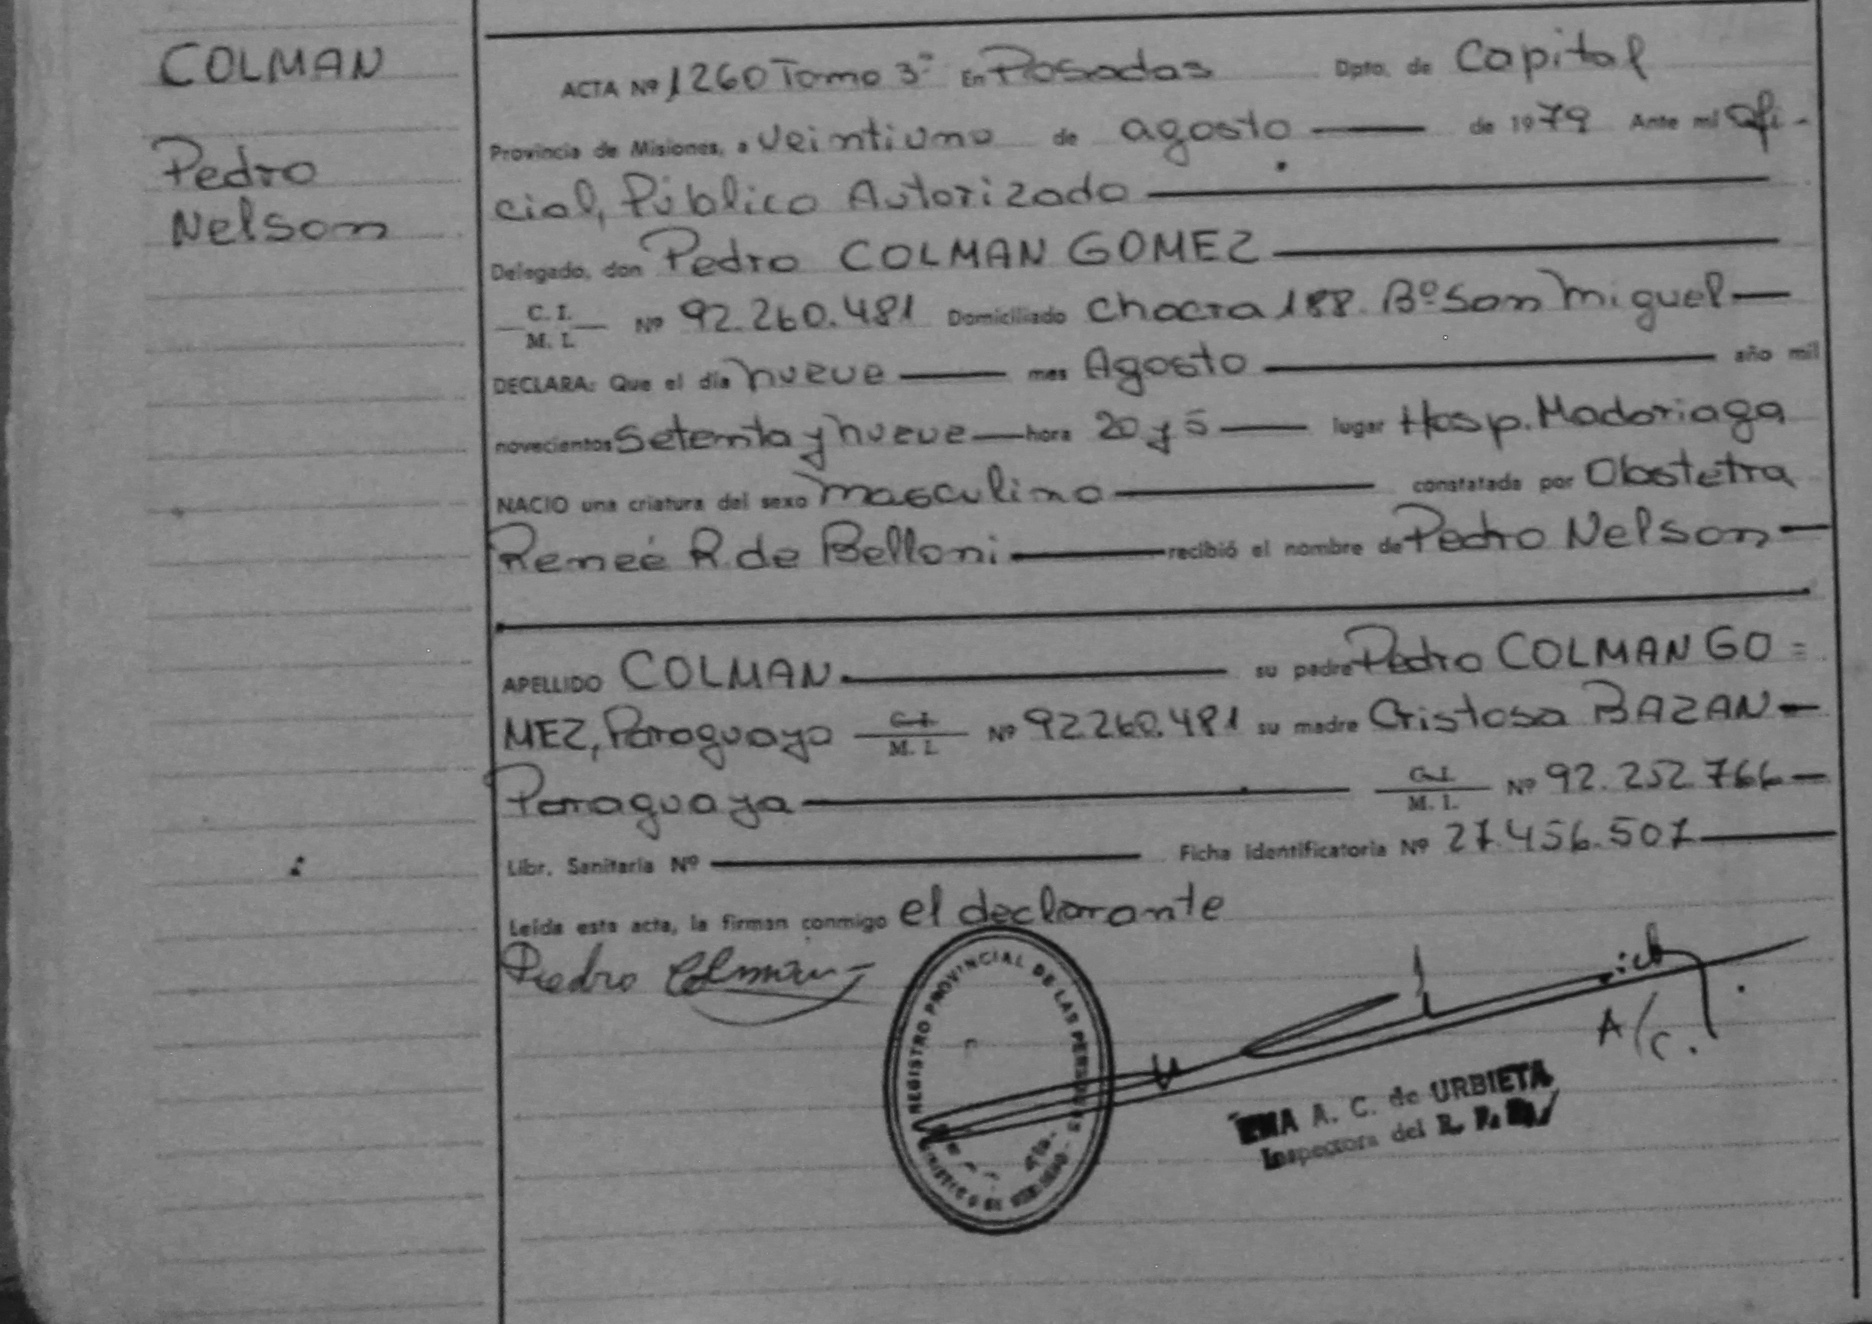 COLMAN
Pedro
Nelson
ACTA Nº 1260 Tomo 3º En Posadas Dpto. de Capital
Provincia de Misiones, a veintiuno de agosto de 1979 Ante mí Ofi-
cial, Público Autorizado
Delegado, don Pedro COLMAN GOMEZ
C. I.
M. I. Nº 92.260.481 Domiciliado Chacra 188. Bº San Miguel
DECLARA: Que el día nueve mes Agosto año mil
novecientos setenta y nueve hora 20 y 5 lugar Hosp. Madariaga
NACIO una criatura del sexo masculino constatada por Obstetra
Reneé R. de Belloni recibió el nombre de Pedro Nelson
APELLIDO COLMAN su padre Pedro COLMAN GO=
MEZ, Paraguayo C.I. M. I. Nº 92260.481 su madre Cristosa BAZAN
Paraguaya C.I. M. I. Nº 92.252.766
Libr. Sanitaria Nº Ficha Identificatoria Nº 27.456.507
Leída esta acta, la firman conmigo el declarante
Pedro Colman
REGISTRO PROVINCIAL DE LAS PERSONAS
A/C.
A. C. de URBIETA
Inspectora del R. P.